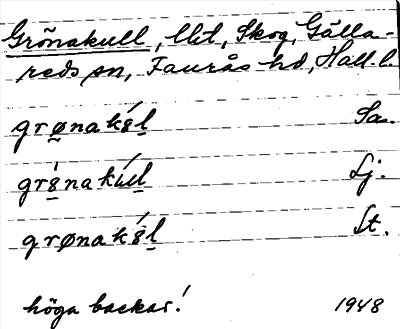 Grönakull, llit, Skog, Gälla-
reds sn, Faurås hd, Hall. l.
grønakɞ́l Sa.
grɞ́nakúl Lj.
grønakɞ́l St.
höga backar! 1948